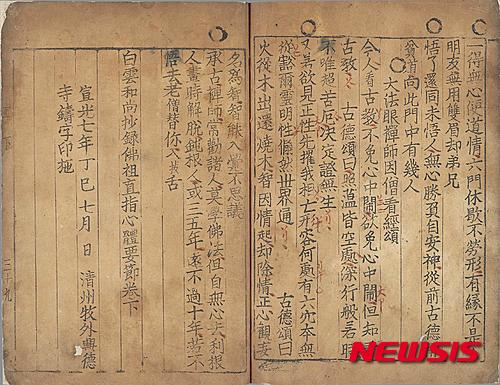 得無心郤道情六門休歇不勞形有緣不是
朋友無用雙眉却弟兄
悟了還同未悟人無心勝負自安神從前古德稱
貧道向此門中有幾人
大法眼禪師因僧看經頌
今人看古教不免心中閙欲免心中閙但知看
古教 古德頌曰照蘊皆空處深行般若時
不唯超苦厄決定證無生
又 欲見正性先推我相亡形容何處有六 本無
從豁爾靈明性翛然世界通 古德頌曰
火從木出還燒木智因情起却除情正心觀妄
名爲智智能入覺不思議
承古禪師高勸諸人莫學佛法但自無心去利根
人晝時解脫鈍根人或三五年遠不過十年若不
悟去老僧替你入拔舌
白雲和尚抄錄佛祖直指心體要節卷下
宣光七年丁巳七月 日 淸州牧外興德
寺鑄字印施
三十九
NEWSIS